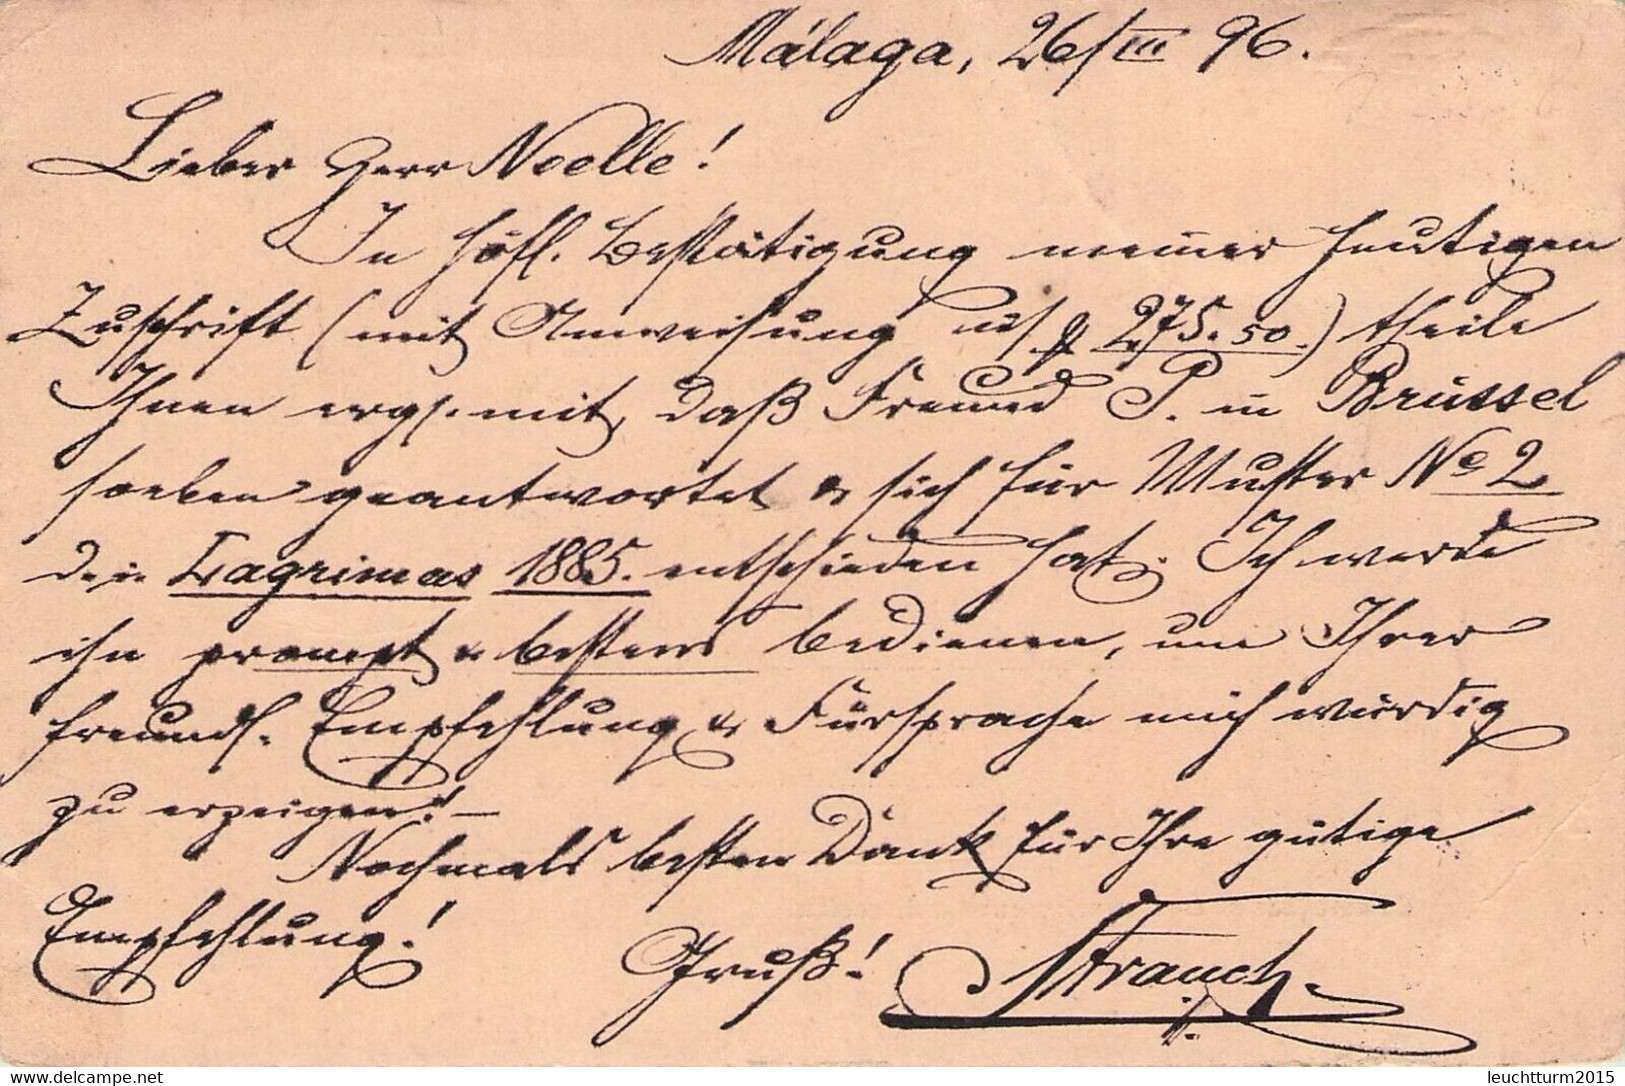 Málaga, 26/III 96.
Lieber Herr Noelle!
In höfl. Bestätigung meiner heutigen
Zuschrift (mit Anweisung 275.50.) theile
Ihnen erg. mit, daß Freund P. in Brüssel
soeben geantwortet & sich für Muster No 2
den Lagrimas 1885. entschieden hat. Ich werde
ihn prompt & bestens bedienen, um Ihrer
freundl. Empfehlung & Fürsprache mich würdig
zu erzeigen! —
Nochmals besten Dank für Ihre gütige
Empfehlung! Gruß! Strauch.
http://www.delcampe.net
leuchtturm2015